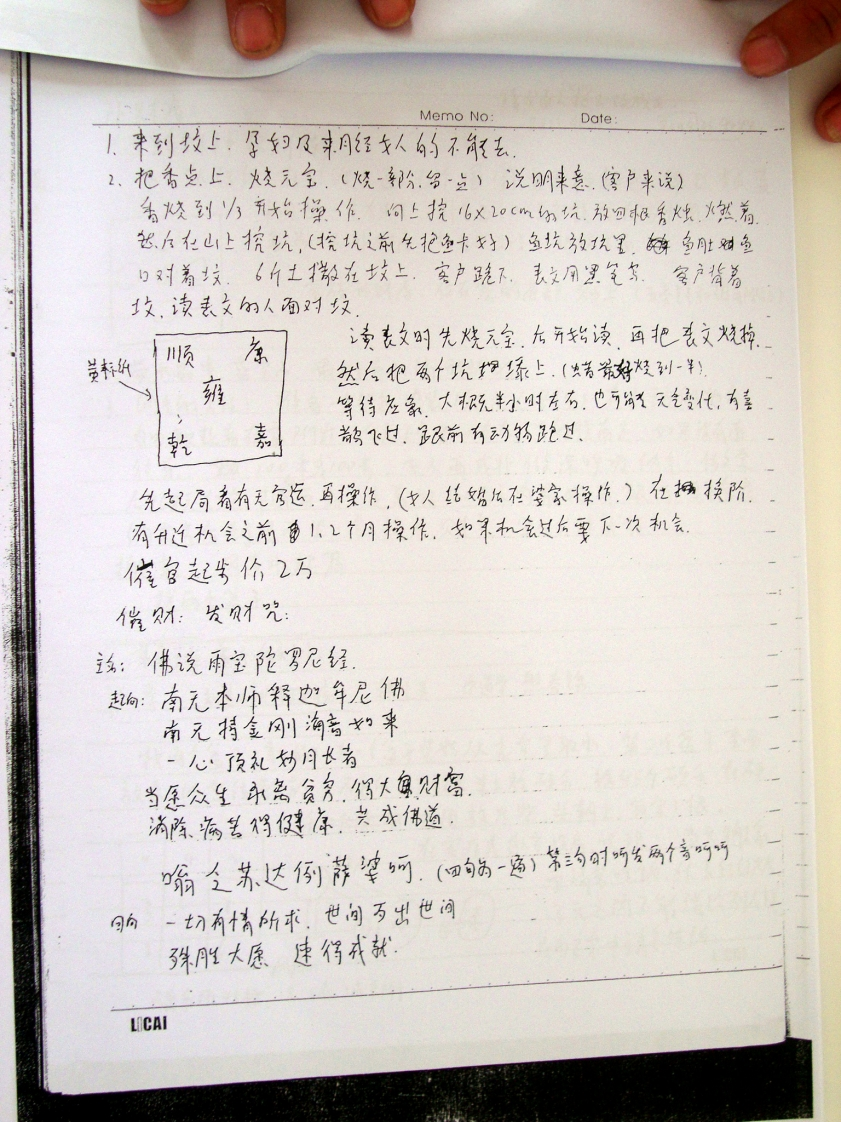 Memo No: Date:
1. 来到坟上. 孕妇及来月经女人的不能去.
2. 把香点上. 烧元宝. (烧一部分.留一点) 说明来意.(客户来说)
香烧到1/3开始操作. 向上挖16×20cm的坑. 放四根香烛. 燃着.
然后在山上挖坑,(挖坑之前先把鱼卡好) 鱼坑放坑里. 鱼肚对鱼
口对着坟. 6斤土撒在坟上. 客户跪下. 表文用黑笔写. 客户背着
坟.读表文的人面对坟.
读表文时先烧元宝.后开始读.再把表文烧掉.
然后把两个坑埋上.(烧到一半)
等待应象.大概无半小时左右.也可能天空变化,有喜
鹊飞过.跟前有动物跑过.
黄标纸
顺 康
雍
乾 嘉
先起局看有无官运.再操作.(女人结婚后在婆家操作.) 在换阶.
有升迁机会之前1、2个月操作. 如果机会过后要下一次机会.
催官起步价2万
催财: 发财咒:
佛说雨宝陀罗尼经.
起向: 南无本师释迦牟尼佛
南无持金刚海音如来
一心顶礼妙月长者
当愿众生 永离贫穷.得大财富.
消除病苦得健康.共成佛道.
嗡 仝 苏达倒萨婆呵.(四句为一遍) 第三句时呵发两个音呵呵
回向 一切有情所求. 世间及出世间
殊胜大愿 速得成就.
LICAI